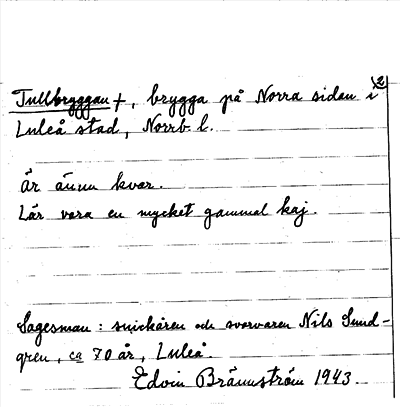 2
Tullbryggan +, brygga på Norra sidan i
Luleå stad, Norrb. l.
är ännu kvar.
Lär vara en mycket gammal kaj.
Sagesman: snickaren och svarvaren Nils Sund-
gren, ca 70 år, Luleå.
Edvin Brännström 1943.